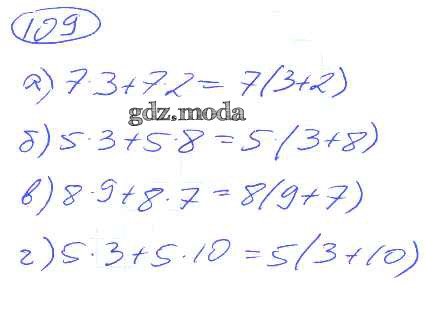 109
а) 7·3+7·2= 7(3+2)
gdz.moda
б) 5·3+5·8=5·(3+8)
в) 8·9+8·7=8(9+7)
г) 5·3+5·10=5(3+10)